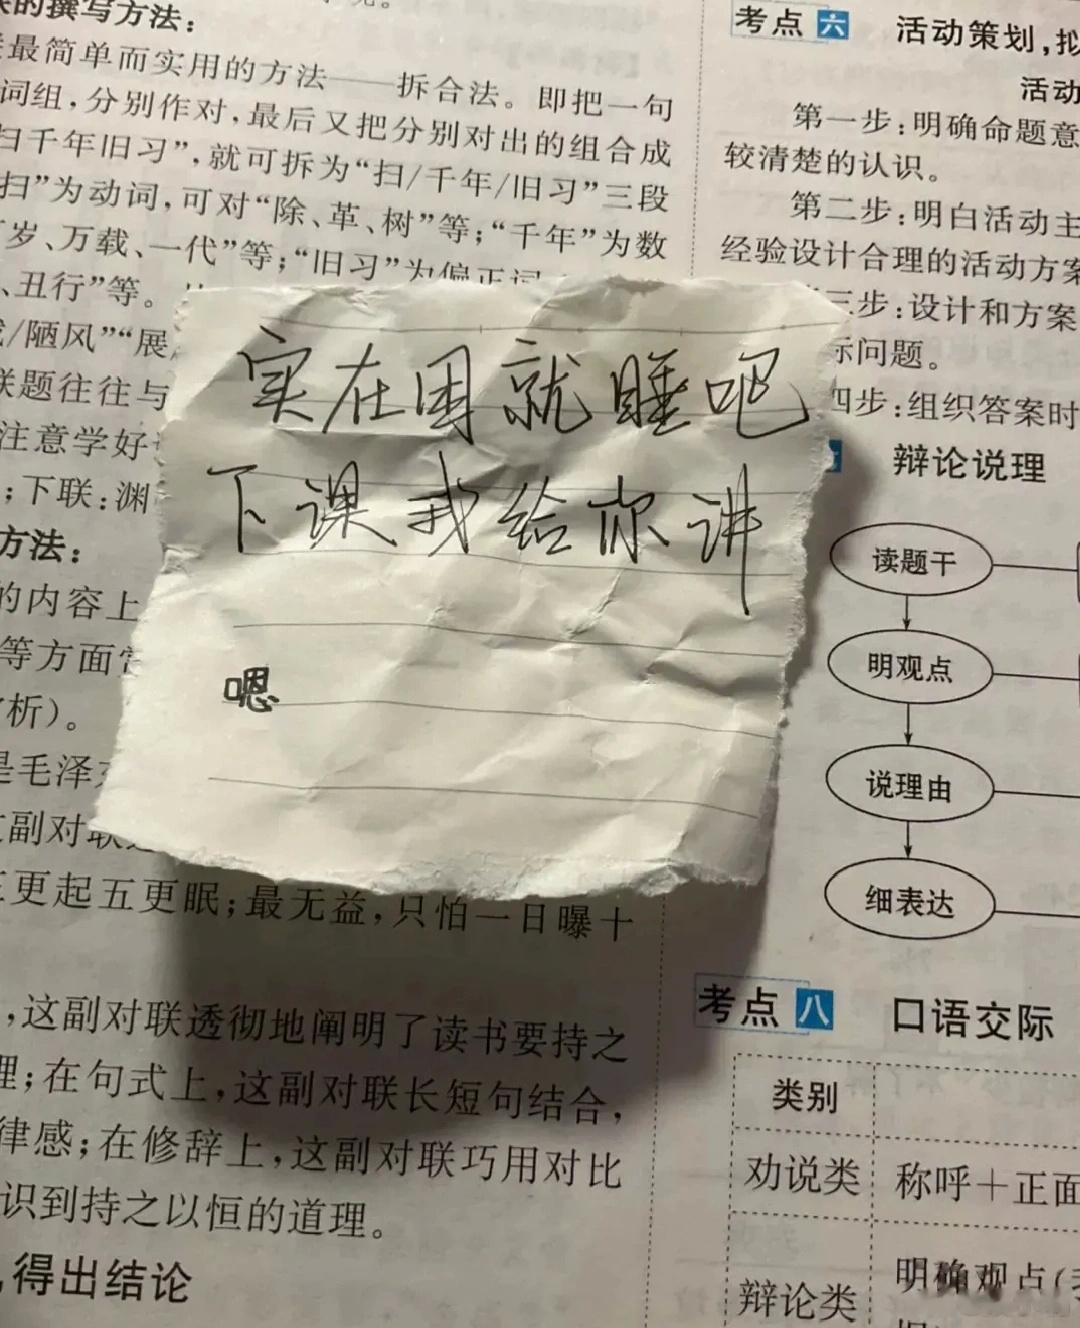 的撰写方法：
最简单而实用的方法——拆合法。即把一句
词组，分别作对，最后又把分别对出的组合成
扫千年旧习”，就可拆为“扫/千年/旧习”三段
扫”为动词，可对“除、革、树”等；“千年”为数
岁、万载、一代”等；“旧习”为偏正词
、丑行”等。
/陋风”“展
联题往往与
注意学好
；下联：渊
方法：
的内容上
等方面
析）。
是毛泽
副对联
三更起五更眠；最无益，只怕一日曝十
，这副对联透彻地阐明了读书要持之
理；在句式上，这副对联长短句结合，
律感；在修辞上，这副对联巧用对比
识到持之以恒的道理。
，得出结论
实在困就睡吧
下课我给你讲
嗯
考点六 活动策划，拟
活动
第一步：明确命题意
较清楚的认识。
第二步：明白活动主
经验设计合理的活动方案
三步：设计和方案
际问题。
四步：组织答案时
辩论说理
读题干
明观点
说理由
细表达
考点八 口语交际
类别
劝说类 称呼＋正面
辩论类 明确观点（